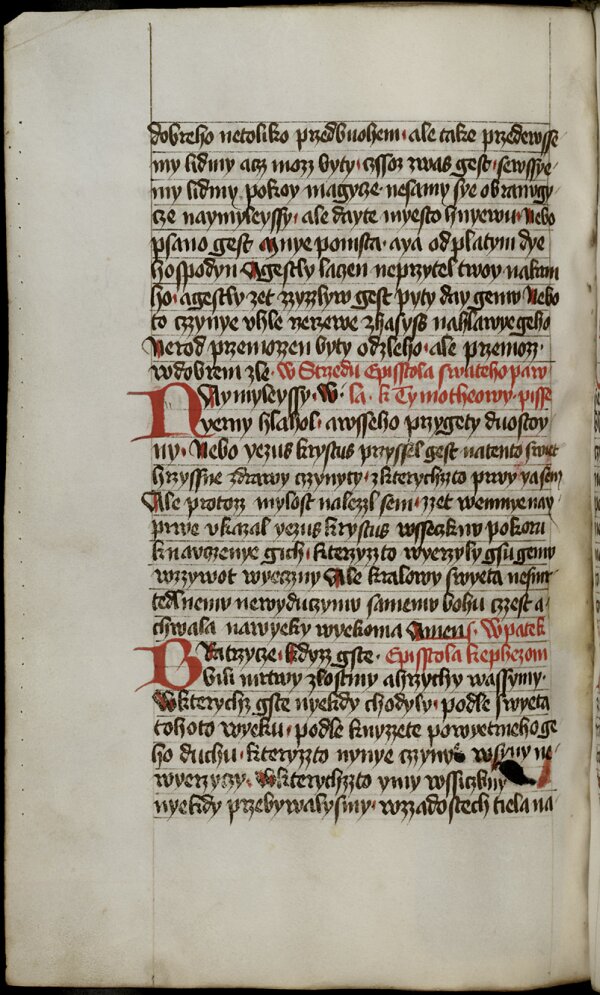 dobreho netoliko przedbuohem · ale take przedewsse
my lidmy acz mozz byty · czssoz zwas gest · sewssye
my lidmy pokoy magycze · nesamy sye obranygy
cze naymyleyssy · ale dayte myesto hnyewu · Nebo
psano gest mnye pomsta · aya odplatym dye
hospodyn Agestly laczen neprzytel twoy nakrm
ho · agestly zet zzyzzlyw gest pyty day gemu Nebo
to czzynye vhle rzerzewe zhasyss nahlawye geho
Nerod przemozzen byty odzleho · ale przemozz ·
wdobrem zle · w Strzedu Episstola swateho paw
Naymyleyssy · W · la · k Tymotheowy · pisse
yerny hlahol · awsseho przygety duostoy
ny · Nebo yezus krystus przyssel gest natento swiet
hrzyssne zdrawy czynyty · zkterychzto prwy yasem
Ale protoz mylost nalezzl sem · zzet wemnye nay
prwe vkazal yezus krystus wsseczknu pokoru
knauczenye gich · kterzyzto wyerzyly gsu gemu
wzzywot wyeczny Ale kralowy swyeta nesmr
tedlnemu newyduczymu samemu bohu czzest a
chwala nawyeky wyekoma Amen s · W patek
Bratrzycze · kdyzz gste · Episstola kephezom
byli mrtwy zlostmy ahrzychy wassymy ·
Wkterychz gste nyekdy chodyly · podle swyeta
tohoto wyeku · podle knyzzete powyetrneho ge
ho duchu · kteryzzto nynye czyny wsyny ne
wyerzyczy · Wkterychzzto ymy wssiczkny
nyekdy przebywalysmy · wzzadostech tiela na